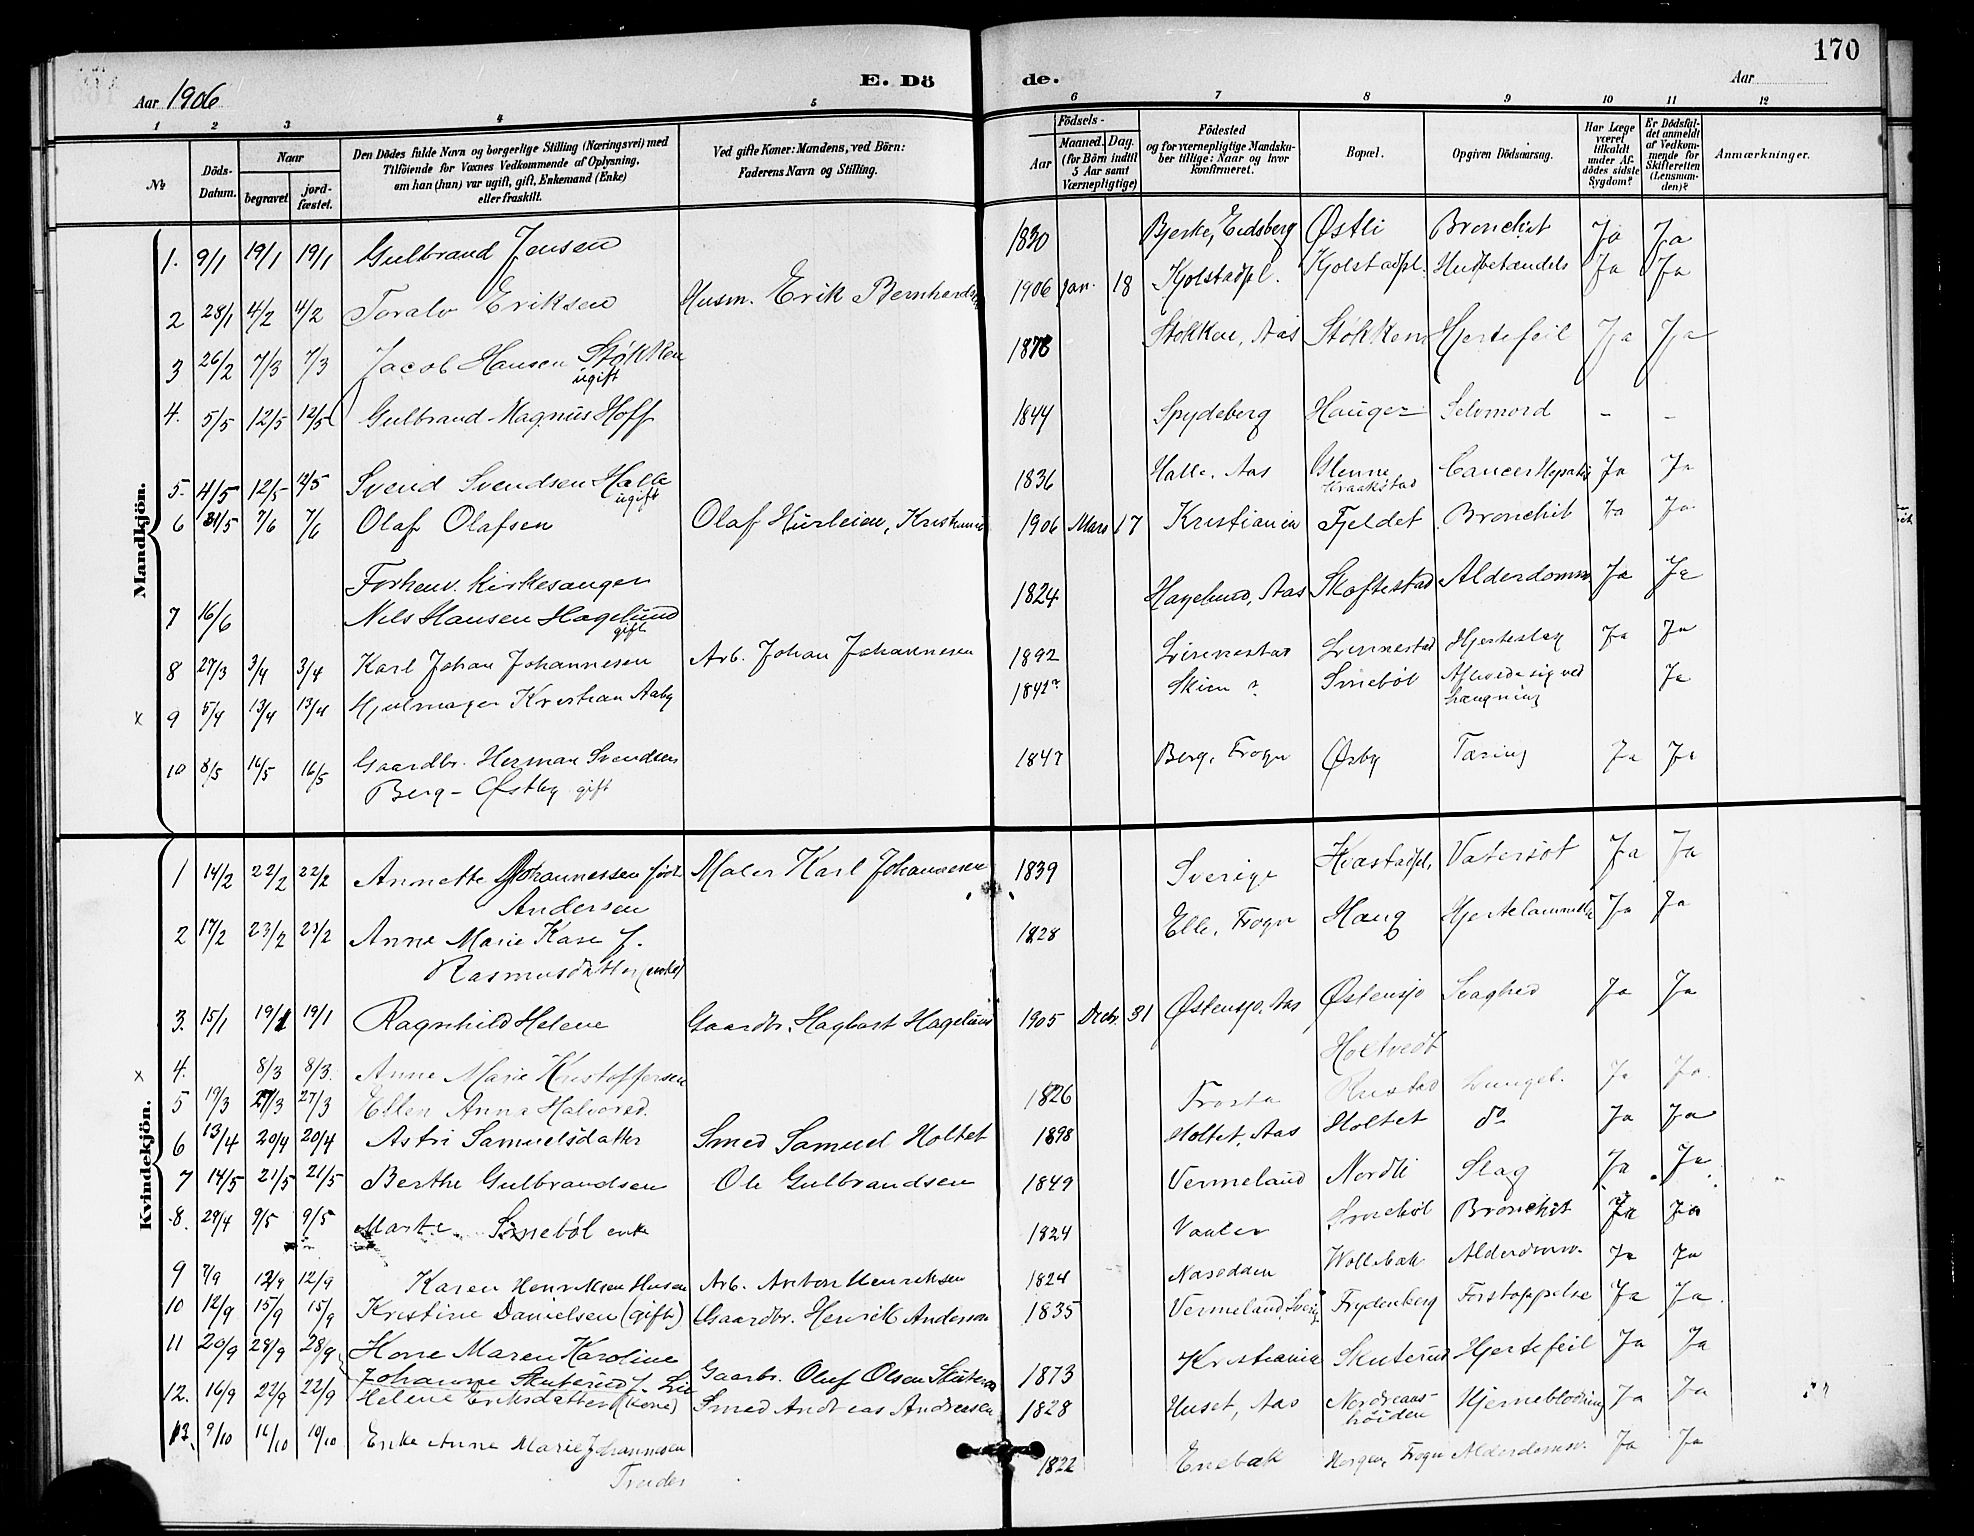 170
Aar 1906
E. Dö
de.
Aar
1 2 3 4 5 6 7 8 9 10 11 12
№
Döds-Datum.
Naar
begravet
jord-fæstet.
Den Dödes fulde Navn og borgerlige Stilling (Næringsvei) med
Tilföiende for Voxnes Vedkommende af Oplysning,
om han (hun) var ugift, gift, Enkemand (Enke)
eller fraskilt.
Ved gifte Koner: Mandens, ved Börn:
Faderens Navn og Stilling.
Födsels-
Aar
Maaned. Dag.
(for Börn indtil
5 Aar samt
Værnepligtige)
Födested
og for værnepligtige Mandsku-
ber tillige: Naar og hvor
konfirmeret.
Bopæl.
Opgiven Dödsaarsag.
Har Læge
været
tilkaldt
under Af-
dödes sidste
Sygdom?
Er Dödsful-
det anmeldt
af Vedkom-
mende for
Skifteretten
(Lensman-
den)?
Anmærkninger.
Mandkjön.
1. 9/1 19/1 19/1 Gulbrand Jensen 1830 Bjerke, Eidsberg Østli Bronchit Ja Ja
2 28/1 4/2 4/2 Toralv Eriksen Husm. Erik Bernhards 1906 Jan. 18 Kjolstadpl. Kjolstadpl. Hudbetændels Ja Ja
3 26/2 7/3 7/3 Jacob Hansen Støkken 1878 Støkken, Aas Støkken Hjertefeil Ja Ja
ugift
4. 5/5 12/5 12/5 Gulbrand Magnus Hoff 1844 Spydeberg Hauger Selvmord - -
5. 4/5 12/5 12/5 Svend Svendsen Halle 1836 Halle, Aas Glenne Cancer Hepatis Ja Ja
ugift Kraakstad
6 31/5 7/6 7/6 Olaf Olafsen Olaf Hurleien, Kristiania 1906 Mars 17 Kristiania Fjeldet Bronchit Ja Ja
Forhenv. Kirkesanger
7 16/6 Nils Hansen Hagelund 1824 Hagelund, Aas Skoftestad Alderdomm Ja Ja
gift
8 27/3 3/4 3/4 Karl Johan Johannesen Arb. Johan Johannesen 1892 Linnestad Linnestad Hjerteslag Ja Ja
x 9 5/4 13/4 13/4 Hjulmager Kristian Aaby 1842? Skien ? Snebøl Aflivede sig ved Ja
hængning
10 8/5 16/5 16/5 Gaardbr. Herman Svendsen 1847 Berg, Frogn Østby Tæring Ja Ja
Berg - Østby gift
Kvindekjön.
1 14/2 22/2 22/2 Annette Johannessen født Maler Karl Johannesen 1839 Sverige Kvastadpl. Vatersot Ja Ja
Andersen
2 17/2 23/2 23/2 Anne Marie Kase f. 1828 Elle, Frogn Haug Hjertelammelse Ja Ja
Rasmusdatter (enke)
3. 15/1 19/1 19/1 Ragnhild Helene Gaardbr. Hagbart Hagelund 1905 Decbr 31 Østensjø, Aas Østensjø Svaghed Ja Ja
x 4. 8/3 8/3. Anne Marie Kristoffersen Holtvedt
5 19/3 27/3 27/3 Ellen Anna Halvorsd. 1826 Frosta Rustad Lungeb. Ja Ja
6 13/4 20/4 20/4 Astri Samuelsdatter Smed Samuel Holtet 1898 Holtet, Aas Holtet do Ja Ja
7 14/5 21/5 21/5 Berthe Gulbrandsen Ole Gulbrandsen 1849 Vermeland Nordli Slag Ja Ja
8. 29/4 9/5 9/5 Marte Snebøl enke 1824 Vaaler Snebøl Bronchit Ja Ja
9 7/9 12/9 12/9 Karen Henriksen Husen Arb. Anton Henriksen 1824 Nesodden Wollebæk Alderdomsv. Ja Ja
10 12/9 15/9 15/9 Kristine Danielsen (gift) Gaardbr. Henrik Anderson 1835 Vermeland, Sverig Frydenberg Forstoppelse Ja Ja
11 20/9 28/9 28/9 Kone Maren Karoline
Johanne Skuterud f. Lie Gaarbr. Oluf Olsen Skuterud 1873 Kristiania Skuterud Hjertefeil Ja Ja
12. 16/9 22/9 22/9 Helene Eriksdatter (kone) Smed Andreas Andresen 1828 Huset, Aas Nordreaas- Hjerneblødning Ja Ja
høiden
13. 9/10 16/10 10/10 Enke Anne Marie Johannesen 1822 Enebak Horgen, Frogn Alderdomsv. Ja Ja